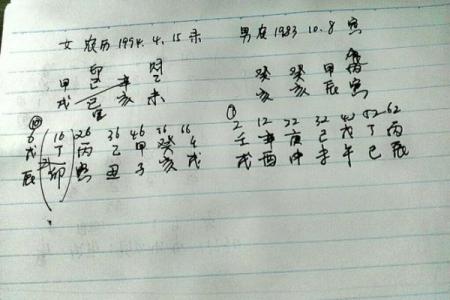 女 农历 1994. 4. 15 未 男农 1983 10. 8 寅
甲 己 辛 乙 癸 癸 甲 丙
戌 巳 亥 未 亥 亥 辰 寅
6 16 26 36 46 56 66 2 12 22 32 42 52 62
戊 丁 丙 乙 甲 癸 壬 辛 庚 己 戊 丁 丙
辰 卯 寅 丑 子 亥 戌 戌 酉 申 未 午 巳 辰